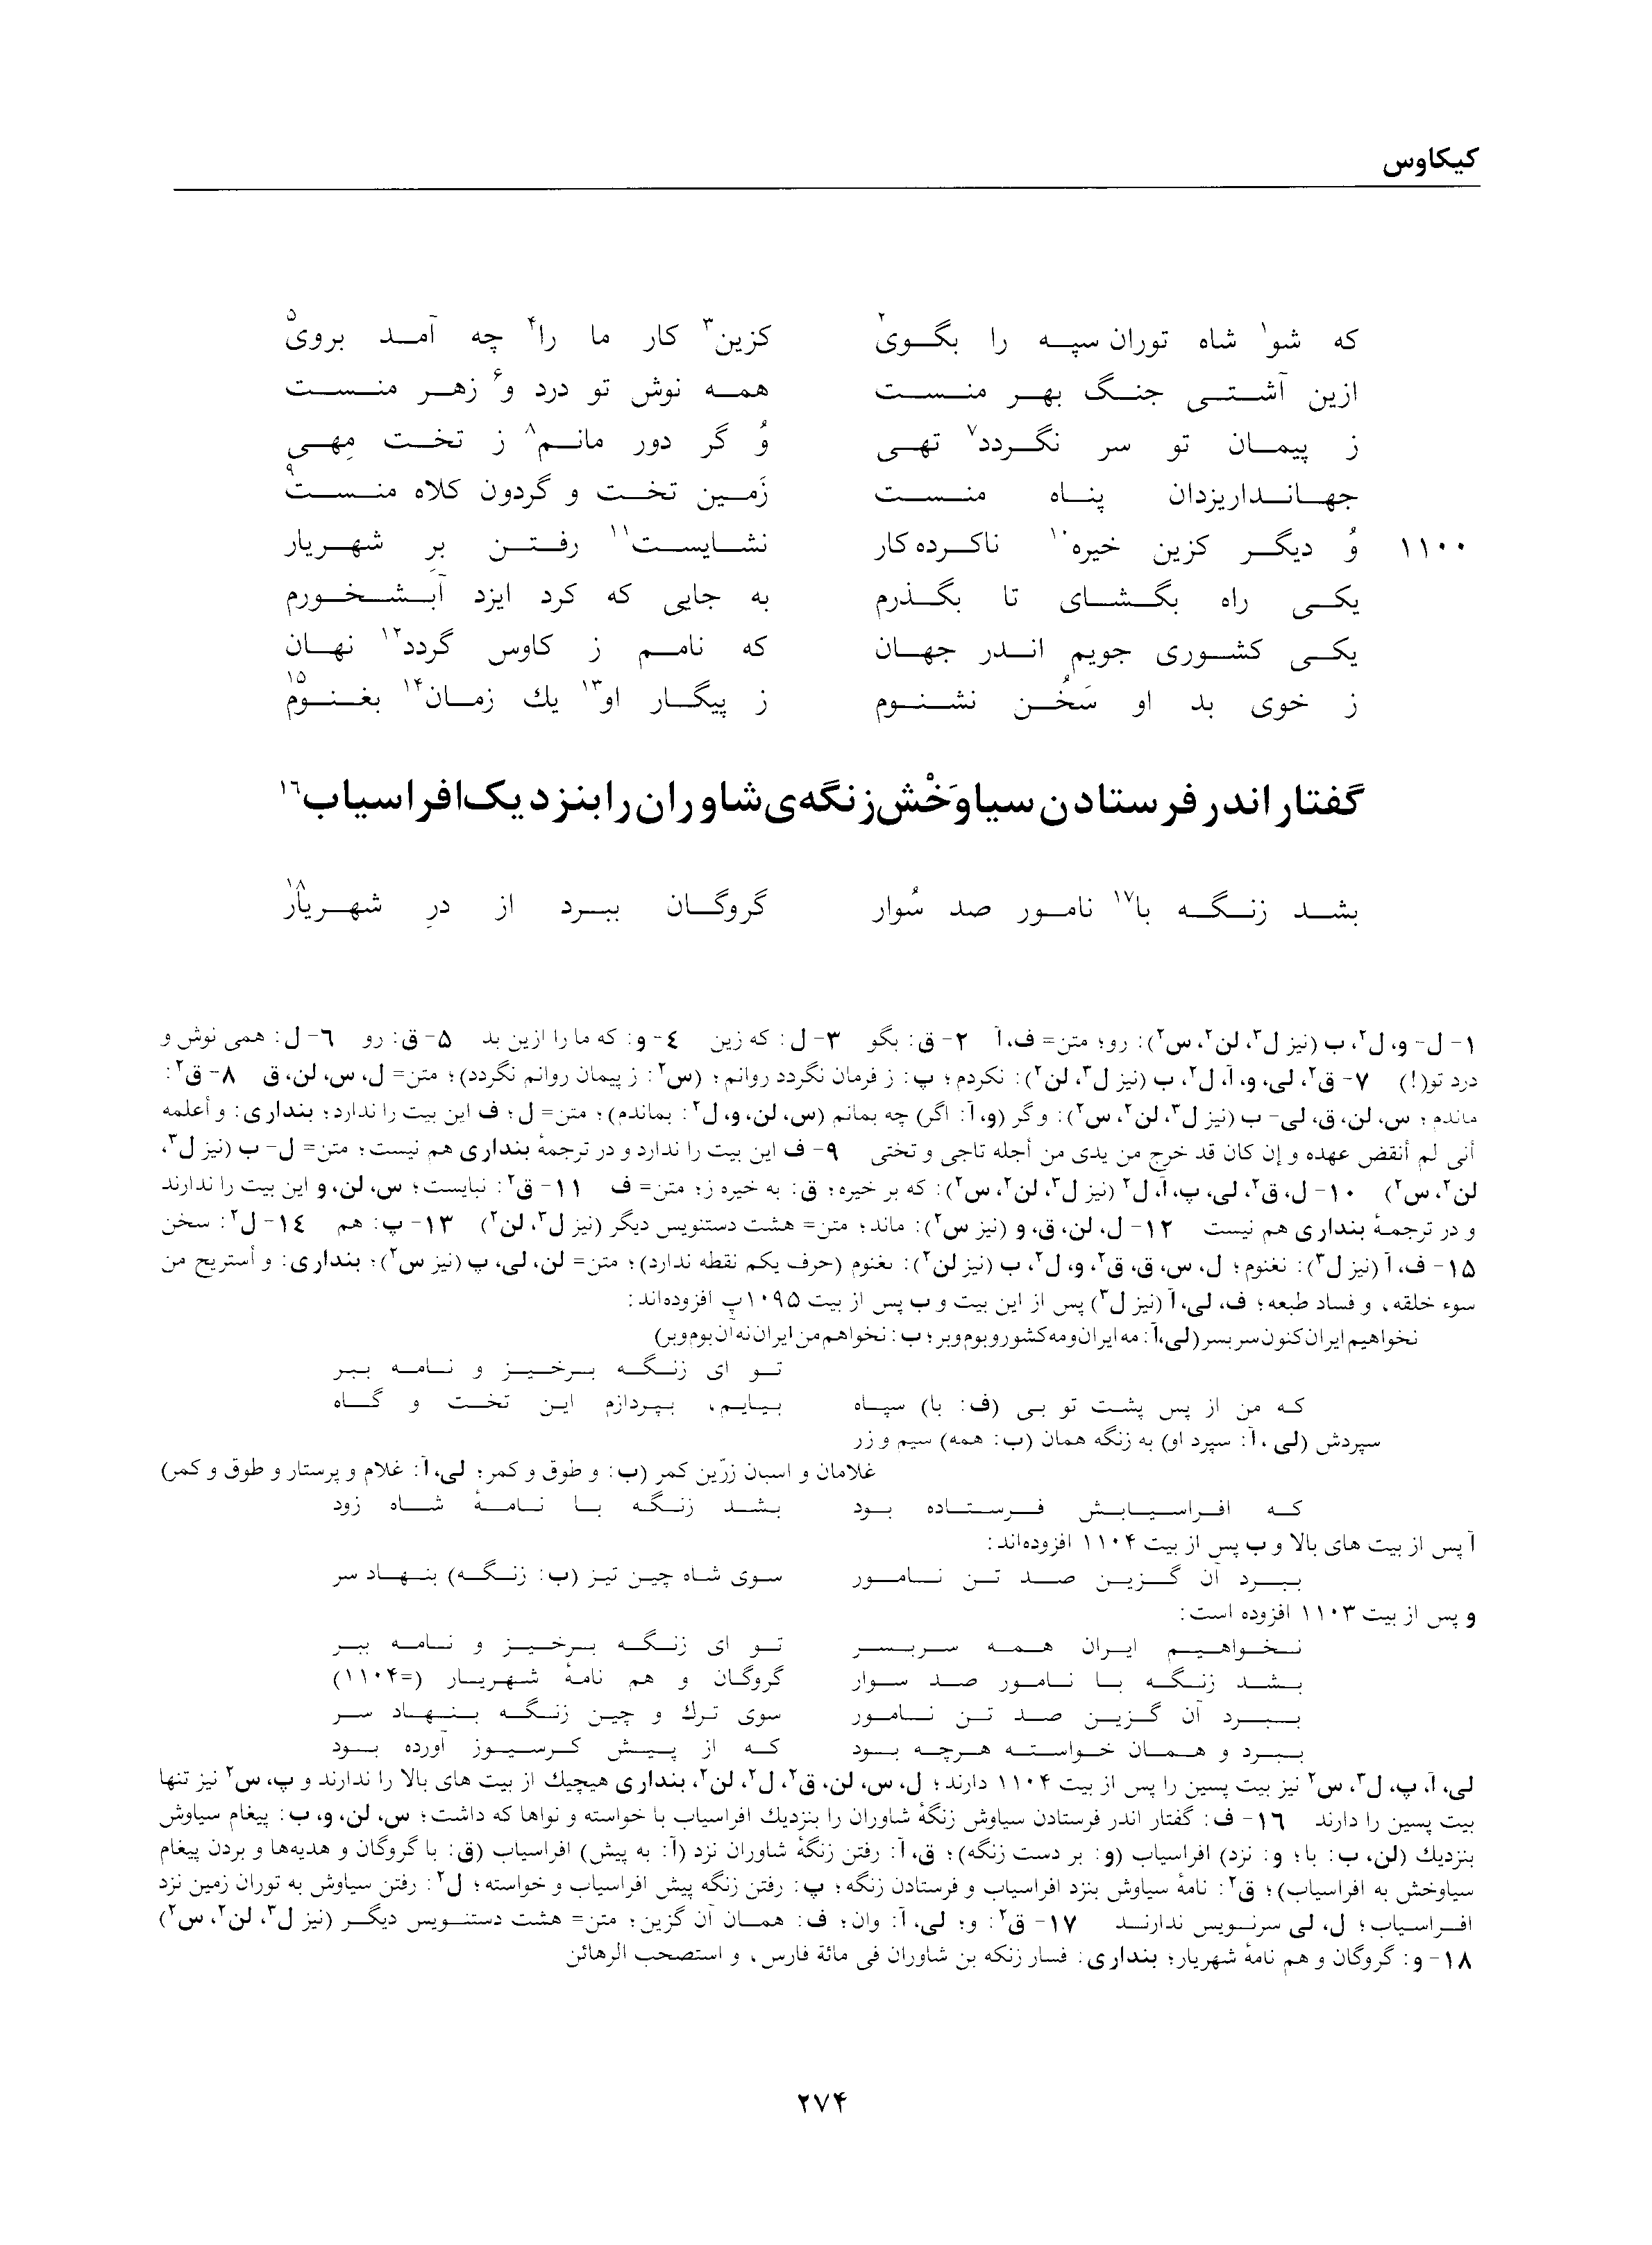 کیکاوس
که شو¹ شاه توران سپه را بگوی² کزین³ کار ما را⁴ چه آمد بروی⁵
ازین آشتی جنگ بهر منست همه نوش تو درد و⁶ زهر منست
ز پیمان تو سر نگردد⁷ تهی وُ گر دور مانم⁸ ز تخت مِهی
جهانداریزدان پناه منست زَمین تخت و گردون کلاه منست⁹
۱۱۰۰ وُ دیگر کزین خیره¹⁰ ناکرده کار نشایست¹¹ رفتن برِ شهریار
یکی راه بگشای تا بگذرم به جایی که کرد ایزد آبشخورم
یکی کشوری جویم اندر جهان که نامم ز کاوس گردد¹² نهان
ز خوی بد او سَخُن نشنوم ز پیگار او¹³ یك زمان¹⁴ بغنوم¹⁵
گفتار اندر فرستادن سیاوَخْش زنگه‌ی شاوران را بنزدیک افراسیاب¹⁶
بشد زنگه با¹⁷ نامور صد سُوار گروگان ببرد از درِ شهریار¹⁸
۱- ل- و، ل²، ب (نیز ل³، لن²، س²): رو؛ متن= ف، آ ۲- ق: بگو ۳- ل: که زین ٤- و: که ما را ازین بد ۵- ق: رو ٦- ل: همی نوش و
درد تو(!) ۷- ق²، لی، و، آ، ل²، ب (نیز ل³، لن²): نکردم؛ پ: ز فرمان نگردد روانم؛ (س²: ز پیمان روانم نگردد)؛ متن= ل، س، لن، ق ۸- ق²:
ماندم؛ س، لن، ق، لی- ب (نیز ل³، لن²، س²): و گر (و، آ: اگر) چه بمانم (س، لن، و، ل²: بماندم)؛ متن= ل؛ ف این بیت را ندارد؛ بنداری: و أعلمه
أنی لم أنقض عهده و إن کان قد خرج من یدی من أجله تاجی و تختی ۹- ف این بیت را ندارد و در ترجمهٔ بنداری هم نیست؛ متن= ل- ب (نیز ل³،
لن²، س²) ۱۰- ل، ق²، لی، پ، آ، ل² (نیز ل³، لن²، س²): که بر خیره؛ ق: به خیره ز؛ متن= ف ۱۱- ق²: نبایست؛ س، لن، و این بیت را ندارند
و در ترجمهٔ بنداری هم نیست ۱۲- ل، لن، ق، و (نیز س²): ماند؛ متن= هشت دستنویس دیگر (نیز ل³، لن²) ۱۳- پ: هم ۱٤- ل²: سخن
۱۵- ف، آ (نیز ل³): نغنوم؛ ل، س، ق، ق²، و، ل²، ب (نیز لن²): ٮغنوم (حرف یکم نقطه ندارد)؛ متن= لن، لی، پ (نیز س²)؛ بنداری: و أستریح من
سوء خلقه، و فساد طبعه؛ ف، لی، آ (نیز ل³) پس از این بیت و ب پس از بیت ۱۰۹۵پ افزوده‌اند:
نخواهیم ایران کنون سر بسر (لی، آ: مه ایران و مه کشور و بوم و بر؛ ب: نخواهم من ایران نه آن بوم و بر)
تو ای زنگه برخیز و نامه ببر
که من از پس پشت تو بی (ف: با) سپاه بیایم، بپردازم این تخت و گاه
سپردش (لی، آ: سپرد او) به زنگه همان (ب: همه) سیم و زر
غلامان و اسبان زرّین کمر (ب: و طوق و کمر؛ لی، آ: غلام و پرستار و طوق و کمر)
که افراسیابش فرستاده بود بشد زنگه با نامهٔ شاه زود
آ پس از بیت های بالا و ب پس از بیت ۱۱۰۴ افزوده‌اند:
ببرد آن گزین صد تن نامور سوی شاه چین تیز (ب: زنگه) بنهاد سر
و پس از بیت ۱۱۰۳ افزوده است:
نخواهیم ایران همه سربسر تو ای زنگه برخیز و نامه ببر
بشد زنگه با نامور صد سوار گروگان و هم نامهٔ شهریار (=۱۱۰۴)
ببرد آن گزین صد تن نامور سوی ترك و چین زنگه بنهاد سر
ببرد و همان خواسته هرچه بود که از پیش کرسیوز آورده بود
لی، آ، پ، ل³، س² نیز بیت پسین را پس از بیت ۱۱۰۴ دارند؛ ل، س، لن، ق²، ل²، لن²، بنداری هیچیك از بیت های بالا را ندارند و پ، س² نیز تنها
بیت پسین را دارند ۱٦- ف: گفتار اندر فرستادن سیاوش زنگهٔ شاوران را بنزدیك افراسیاب با خواسته و نواها که داشت؛ س، لن، و، ب: پیغام سیاوش
بنزدیك (لن، ب: با؛ و: نزد) افراسیاب (و: بر دست زنگه)؛ ق، آ: رفتن زنگهٔ شاوران نزد (آ: به پیش) افراسیاب (ق: با گروگان و هدیه‌ها و بردن پیغام
سیاوخش به افراسیاب)؛ ق²: نامهٔ سیاوش بنزد افراسیاب و فرستادن زنگه؛ پ: رفتن زنگه پیش افراسیاب و خواسته؛ ل²: رفتن سیاوش به توران زمین نزد
افراسیاب؛ ل، لی سرنویس ندارند ۱۷- ق²: و؛ لی، آ: وان؛ ف: همان آن گزین؛ متن= هشت دستنویس دیگر (نیز ل³، لن²، س²)
۱۸- و: گروگان و هم نامهٔ شهریار؛ بنداری: فسار زنکه بن شاوران فی مائة فارس، و استصحب الرهائن
۲۷۴